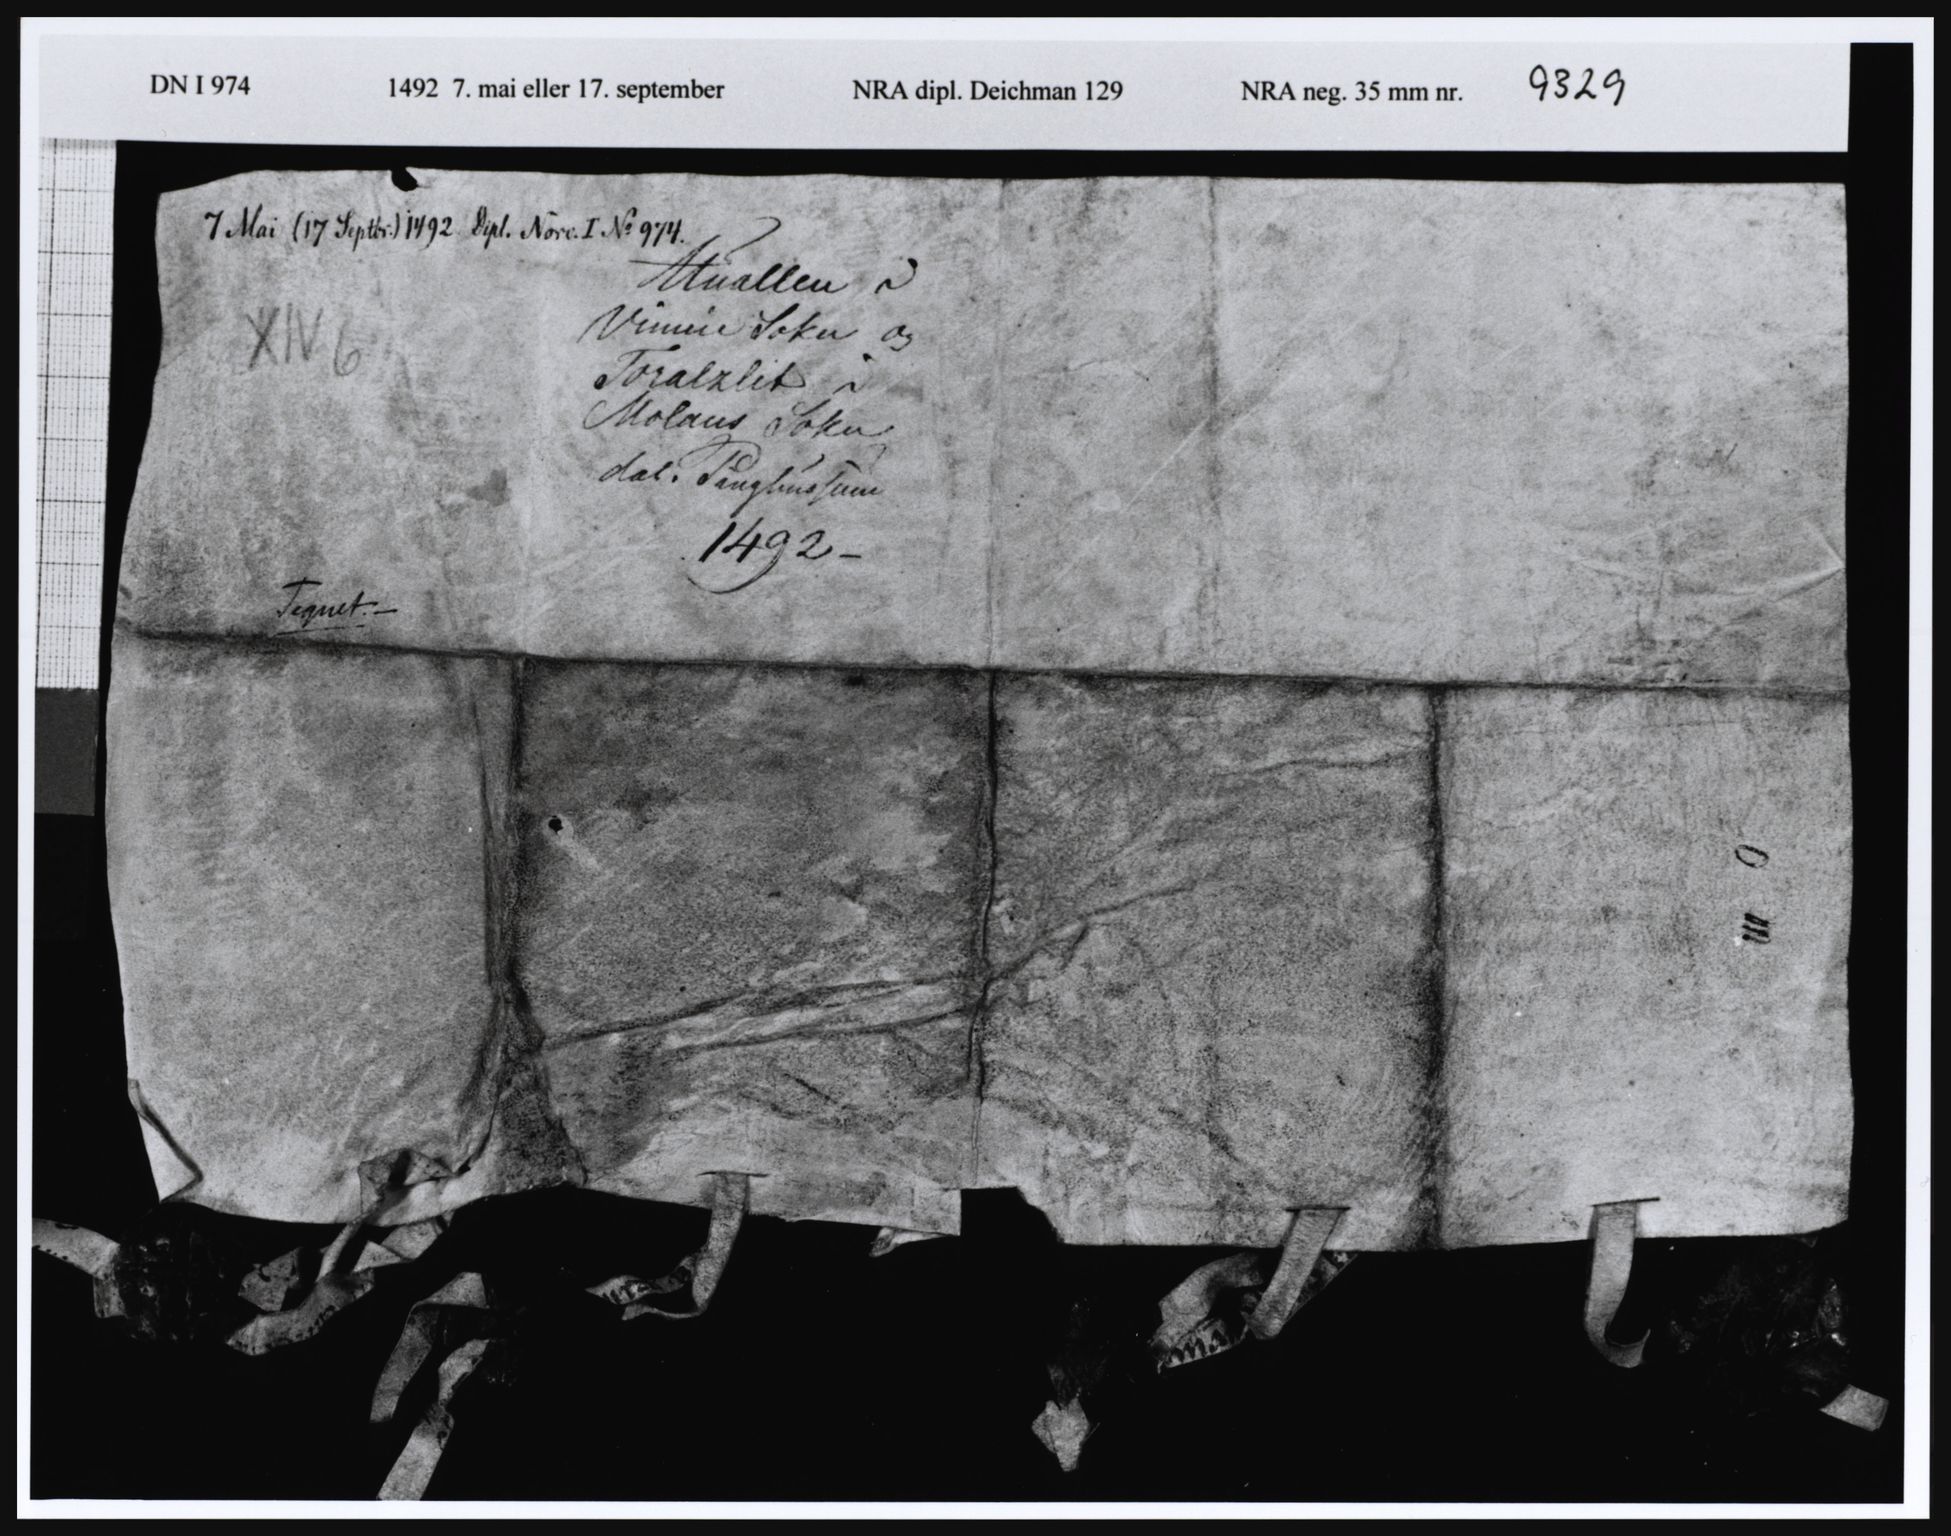 DN I 974 1492 7. mai eller 17. september NRA dipl. Deichman 129 NRA neg. 35 mm nr. 9329
7 Mai (17 Septbr.) 1492 Dipl. Norv. I No 974.
XIV 6
i
Vinnie Sokn og
Toralzlid i
Molans Sokn
dat.
1492 -
Tegnet. -